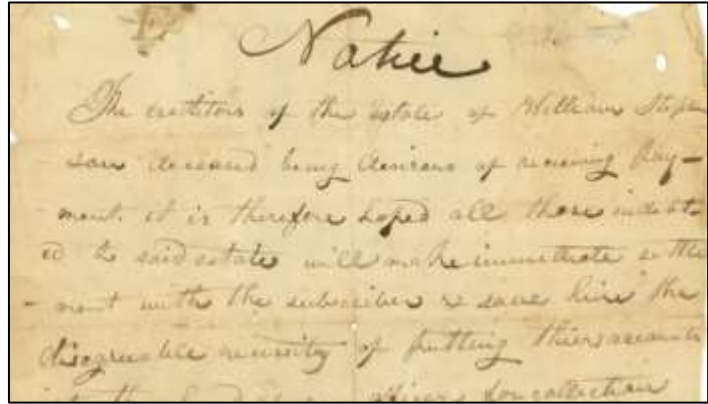 Notice
The creditors of the estate of William Steph
son deceased being desirous of receiving Pay-
- ment. it is therefore hoped all those indebt-
ed to said estate will make immediate settle
- ment with the subscriber & save him the
disagreeable necessity of putting their accounts
officer for collection